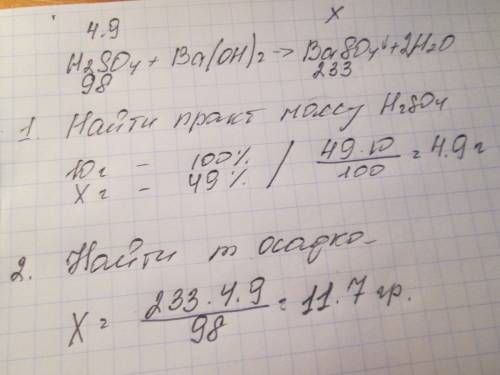 4.9 x
H2SO4 + Ba(OH)2 → BaSO4 + 2H2O
98 233
1. Найти практ массу H2SO4
10г - 100% / 49·10 = 4.9 г
Xг - 49% / 100
2. Найти m осадка
X = 233·4.9 = 11.7 гр.
98